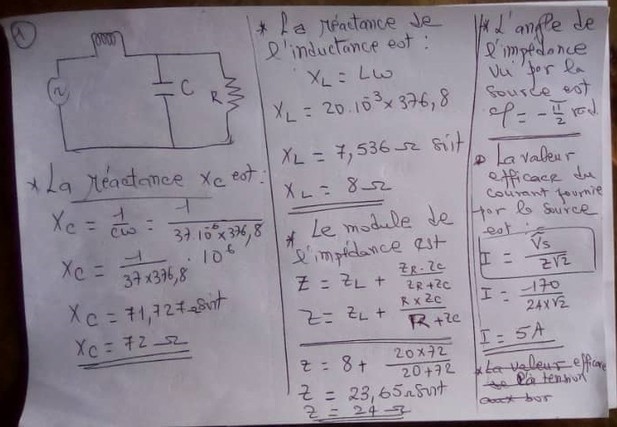 1
C
R
* La réactance Xc est :
Xc = 1/Cω = 1/37.10⁻⁶×376,8
Xc = 1/37×376,8 . 10⁶
Xc = 71,727 Ω soit
Xc = 72 Ω
* La réactance de
l'inductance est :
XL = Lω
XL = 20.10⁻³×376,8
XL = 7,536 Ω soit
XL = 8 Ω
* Le module de
l'impédance est
Z = ZL + ZR.ZC/ZR+ZC
Z = ZL + R×ZC/R+ZC
Z = 8 + 20×72/20+72
Z = 23,65 Ω soit
Z = 24 Ω
* L'angle de
l'impédance
vu par la
source est
φ = -π/2 rad
La valeur
efficace du
courant fournie
par la source
est :
I = Vs/Z√2
I = 170/24×√2
I = 5A
* La valeur efficace
de la tension
aux bor